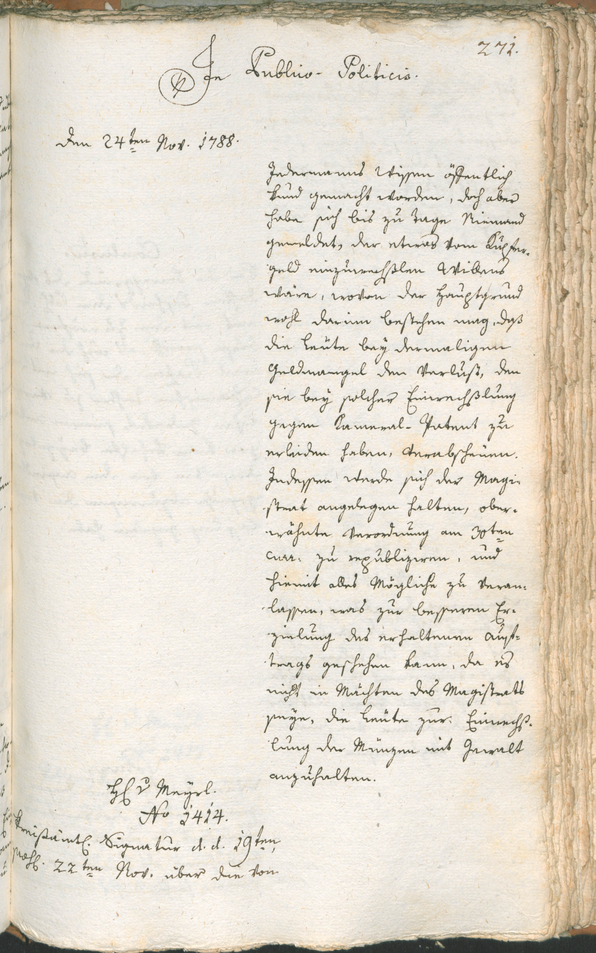 271.
In Publico-Politicis.
Den 24ten Nov. 1788.
Jedermanns Wissen öffentlich
kund gemacht worden, doch aber
habe sich bis zu Tage Niemand
gemeldet, der etwas vom Kupfer-
geld einzuwechslen Willens
wäre, wovon der Hauptgrund
wohl darinn bestehen mag, daß
die Leute bey dermaligen
Geldmangel den Verlust, den
sie bey solcher Einwechßlung
gegen Kameral-Patent zu
erleiden haben, verabscheuen.
Indessen werde sich der Magi-
strat angelegen halten, ober-
wähnte Verordnung am 30ten
curr. zu republiziren, und
hiemit alles Mögliche zu veran-
lassen, was zur besseren Er-
zielung des erhaltenen Auf-
trags geschehen kann, da es
nicht in Mächten des Magistrats
seye, die Leute zur Einwechs-
lung der Münzen mit Gewalt
anzuhalten.
No 1414.
Kreisämtl. Signatur d. d. 19ten,
22ten Nov. über die von